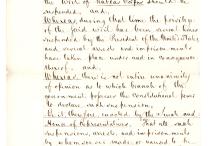 the writ of habeas corpus should be
suspended, and,
Whereas, during that time the privilege
of the said writ has been several times
suspended by the President of the United States,
and several arrests and imprisonments
have taken place under and in consequence
thereof, and
Whereas there is not entire unanimity
of opinion as to which branch of the
government possesses the constitutional power
to declare such suspension,
Be it, therefore, enacted by the Senate and
House of Representatives. That all such
suspensions, arrests, and imprisonments
by whomsoever made or caused to be